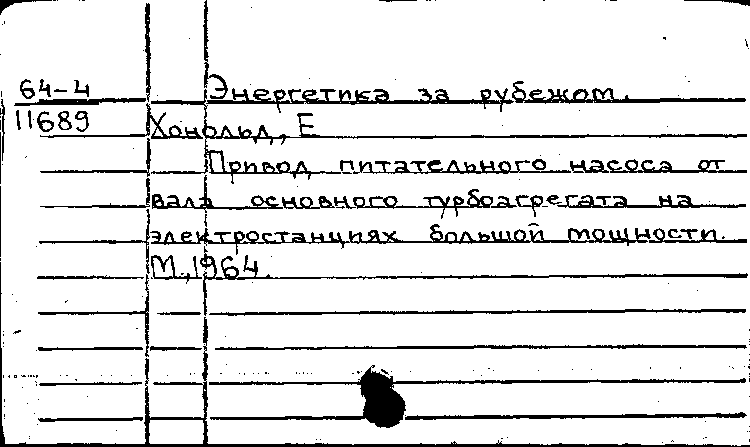 64-4
11689
Энергетика за рубежом.
Хонольд, Е
Привод питательного насоса от
вала основного турбоагрегата на
электростанциях большой мощности.
М., 1964.